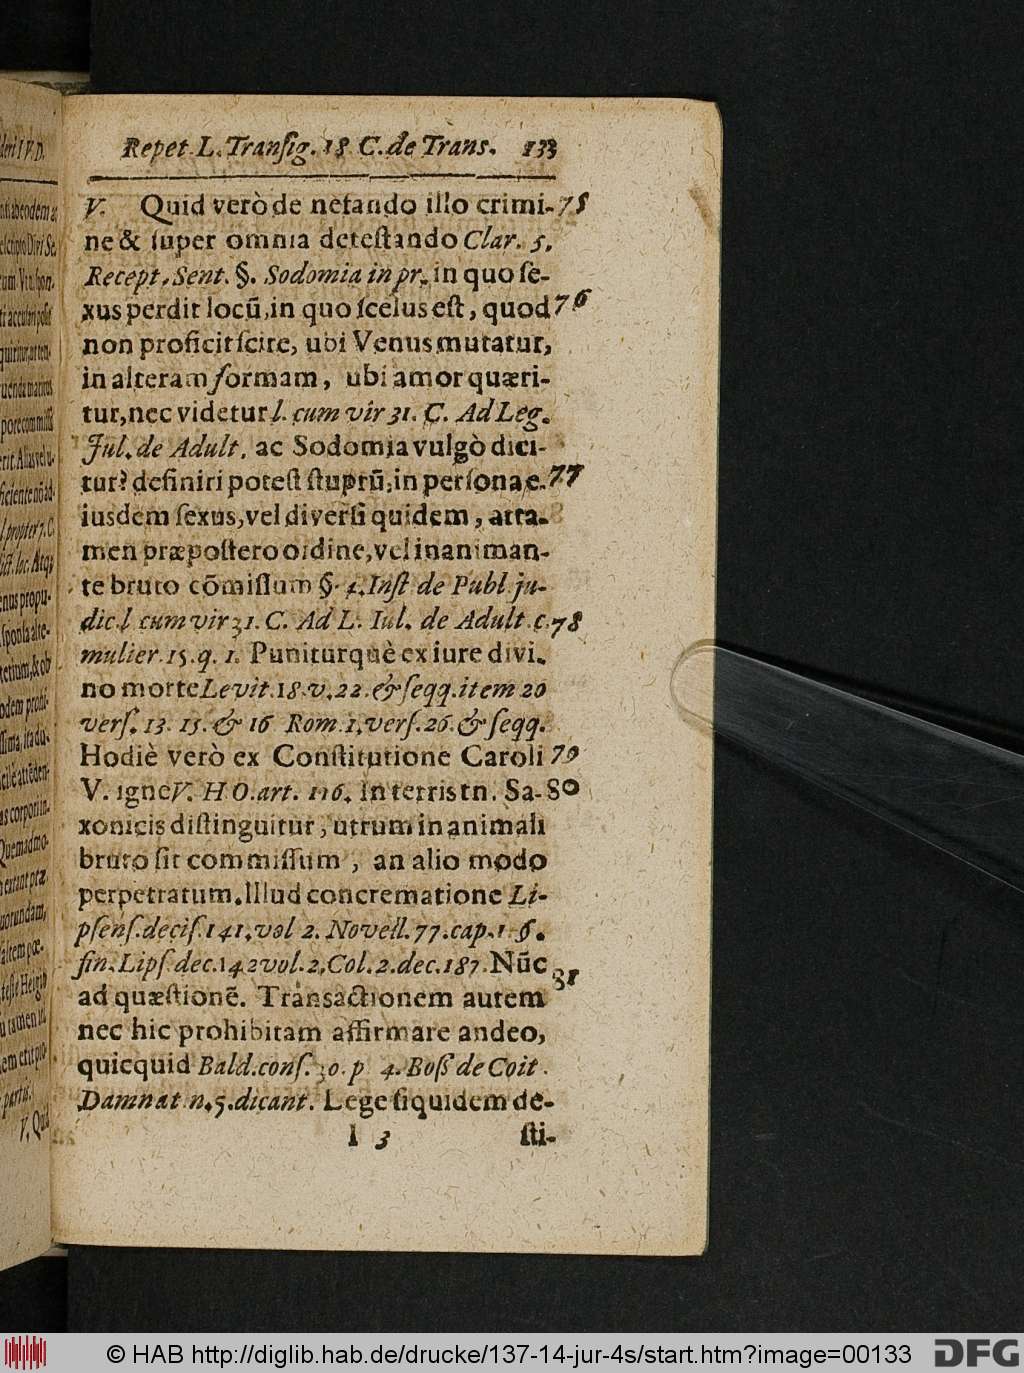 Repet. L. Transig. 18 C. de Trans. 133
V. Quid verò de nefando illo crimi- 75
ne & super omnia detestando Clar. 5.
Recept. Sent. §. Sodomia in pr. in quo se-
xus perdit locū, in quo scelus est, quod 76
non proficit scire, ubi Venus mutatur,
in alteram formam, ubi amor quæri-
tur, nec videtur l. cum vir 31. C. Ad Leg.
Jul. de Adult. ac Sodomia vulgò dici-
tur? definiri potest stuprū, in personae- 77
iusdem sexus, vel diversi quidem, atta-
men præpostero ordine, vel inani man-
te bruto cōmissum §. 4. Inst de Publ ju-
dic. l cum vir 31. C. Ad L. Iul. de Adult. c. 78
mulier. 15. q. 1. Puniturquè ex iure divi.
no morte Levit. 18. v. 22. & seqq. item 20
vers. 13. 15. & 16 Rom. 1. vers. 26. & seqq.
Hodiè verò ex Constitutione Caroli 79
V. igne V. H O. art. 116. In terris tn. Sa- 80
xonicis distinguitur, utrum in animali
bruto sit commissum, an alio modo
perpetratum. Illud concrematione Li-
psens. decis. 141. vol 2. Novell. 77. cap. 1 §.
fin. Lips dec. 142 vol. 2. Col. 2. dec. 187. Nūc 81
ad quæstionē. Transactionem autem
nec hic prohibitam affirmare andeo,
quicquid Bald. cons. 30. p 4. Boss de Coit.
Damnat n. 5. dicant. Lege siquidem de-
I 3 sti-
deri I V. D.
V. Quid
© HAB http://diglib.hab.de/drucke/137-14-jur-4s/start.htm?image=00133
DFG